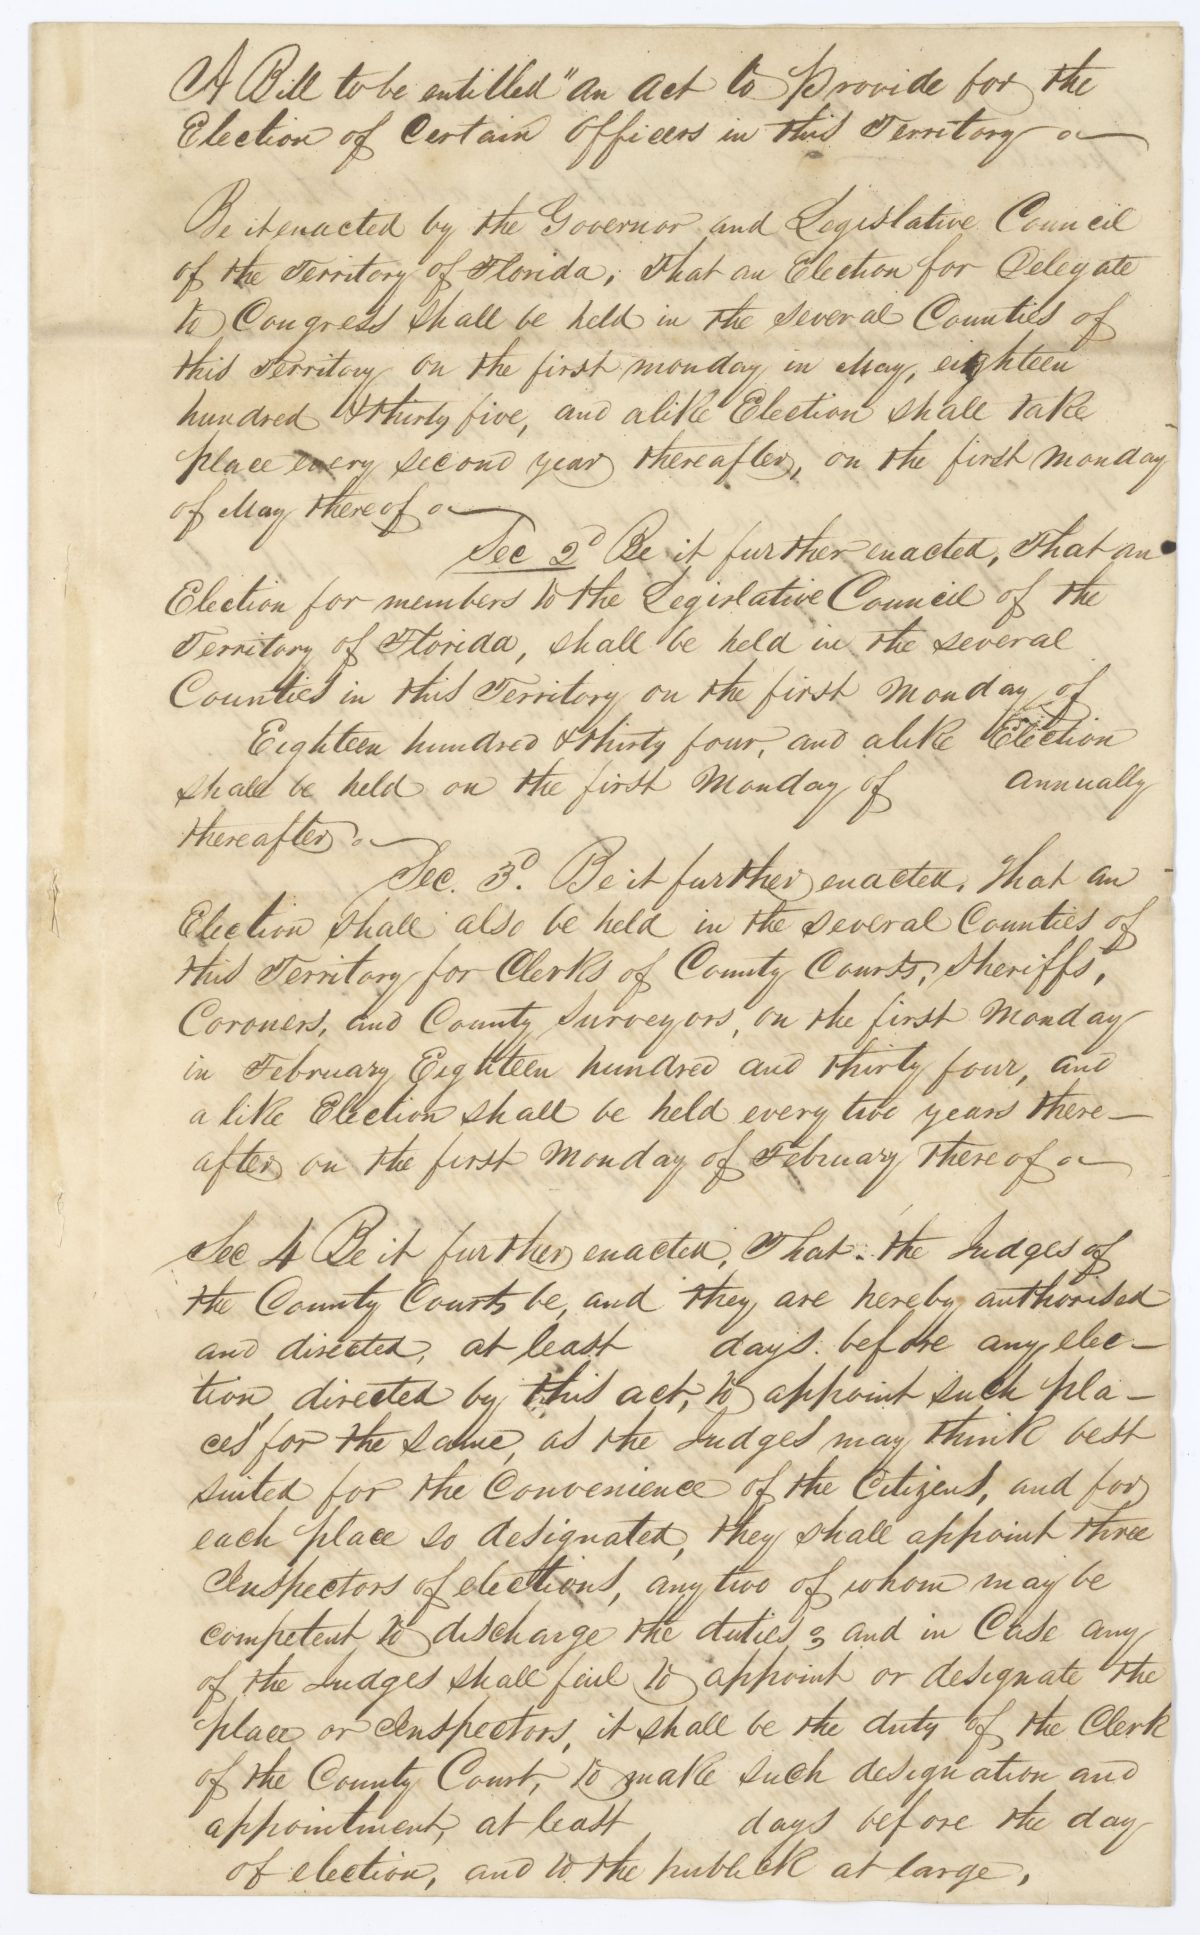 A Bill to be entitled "an act to provide for the
Election of Certain Officers in this Territory
Be it enacted by the Governor and Legislative Council
of the Territory of Florida, That an Election for Delegate
to Congress shall be held in the several Counties of
this Territory on the first monday in May, eighteen
hundred & thirty five, and a like Election shall take
place every second year thereafter, on the first monday
of May thereof
Sec 2d Be it further enacted, That an
Election for members to the Legislative Council of the
Territory of Florida, shall be held in the several
Counties in this Territory on the first Monday of
Eighteen hundred & thirty four, and a like Election
shall be held on the first Monday of annually
thereafter.
Sec. 3d. Be it further enacted. That an
Election shall also be held in the several Counties of
this Territory for Clerks of County Courts, Sheriffs,
Coroners, and County Surveyors, on the first Monday
in February Eighteen hundred and thirty four, and
a like Election shall be held every two years there-
after on the first Monday of February thereof
Sec 4 Be it further enacted, That the Judges of
the County Courts be, and they are hereby authorised
and directed, at least days before any elec-
tion directed by this act, to appoint such pla-
ces for the same, as the Judges may think best
suited for the Convenience of the Citizens, and for
each place so designated, they shall appoint three
Inspectors of elections, any two of whom may be
competent to discharge the duties; and in Case any
of the Judges shall fail to appoint or designate the
place or Inspectors, it shall be the duty of the Clerk
of the County Court, to make such designation and
appointment, at least days before the day
of election, and to the publick at large,